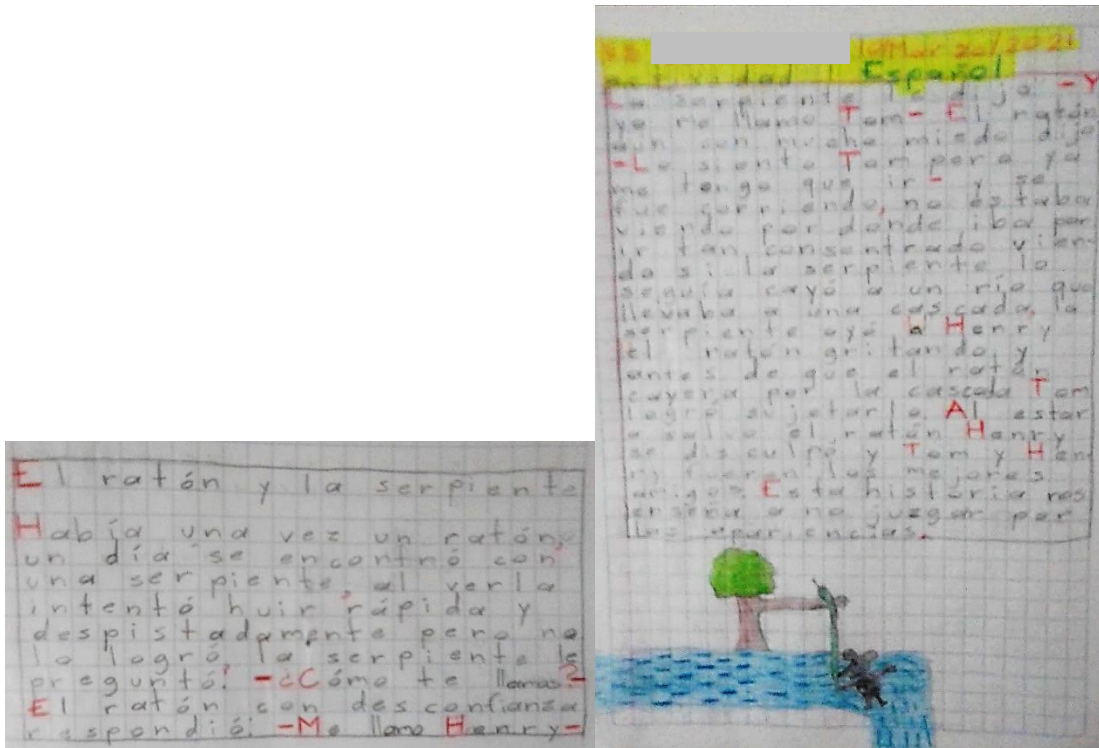 El ratón y la serpiente
Había una vez un ratón,
un día se encontró con
una serpiente, al verla
intentó huir rápida y
despistadamente pero no
lo logró, la serpiente le
preguntó: -¿Cómo te llamas?-
El ratón con desconfianza
respondió: -Me llamo Henry-
10/Marzo/2021
Español
La serpiente le dijo: -Y
yo me llamo Tom- El ratón
aun con mucho miedo dijo
-Lo siento Tom pero ya
me tengo que ir- y se
fue corriendo, no estaba
viendo por donde iba por
ir tan consentrado vien-
do si la serpiente lo
seguía cayó a un río que
llevaba a una cascada, la
serpiente oyó a Henry
el ratón gritando y
antes de que el ratón
cayera por la cascada Tom
logró sujetarlo. Al estar
a salvo el ratón Henry
se disculpó y Tom y Hen-
ry fueron los mejores
amigos. Esta historia nos
enseña a no juzgar por
las apariencias.